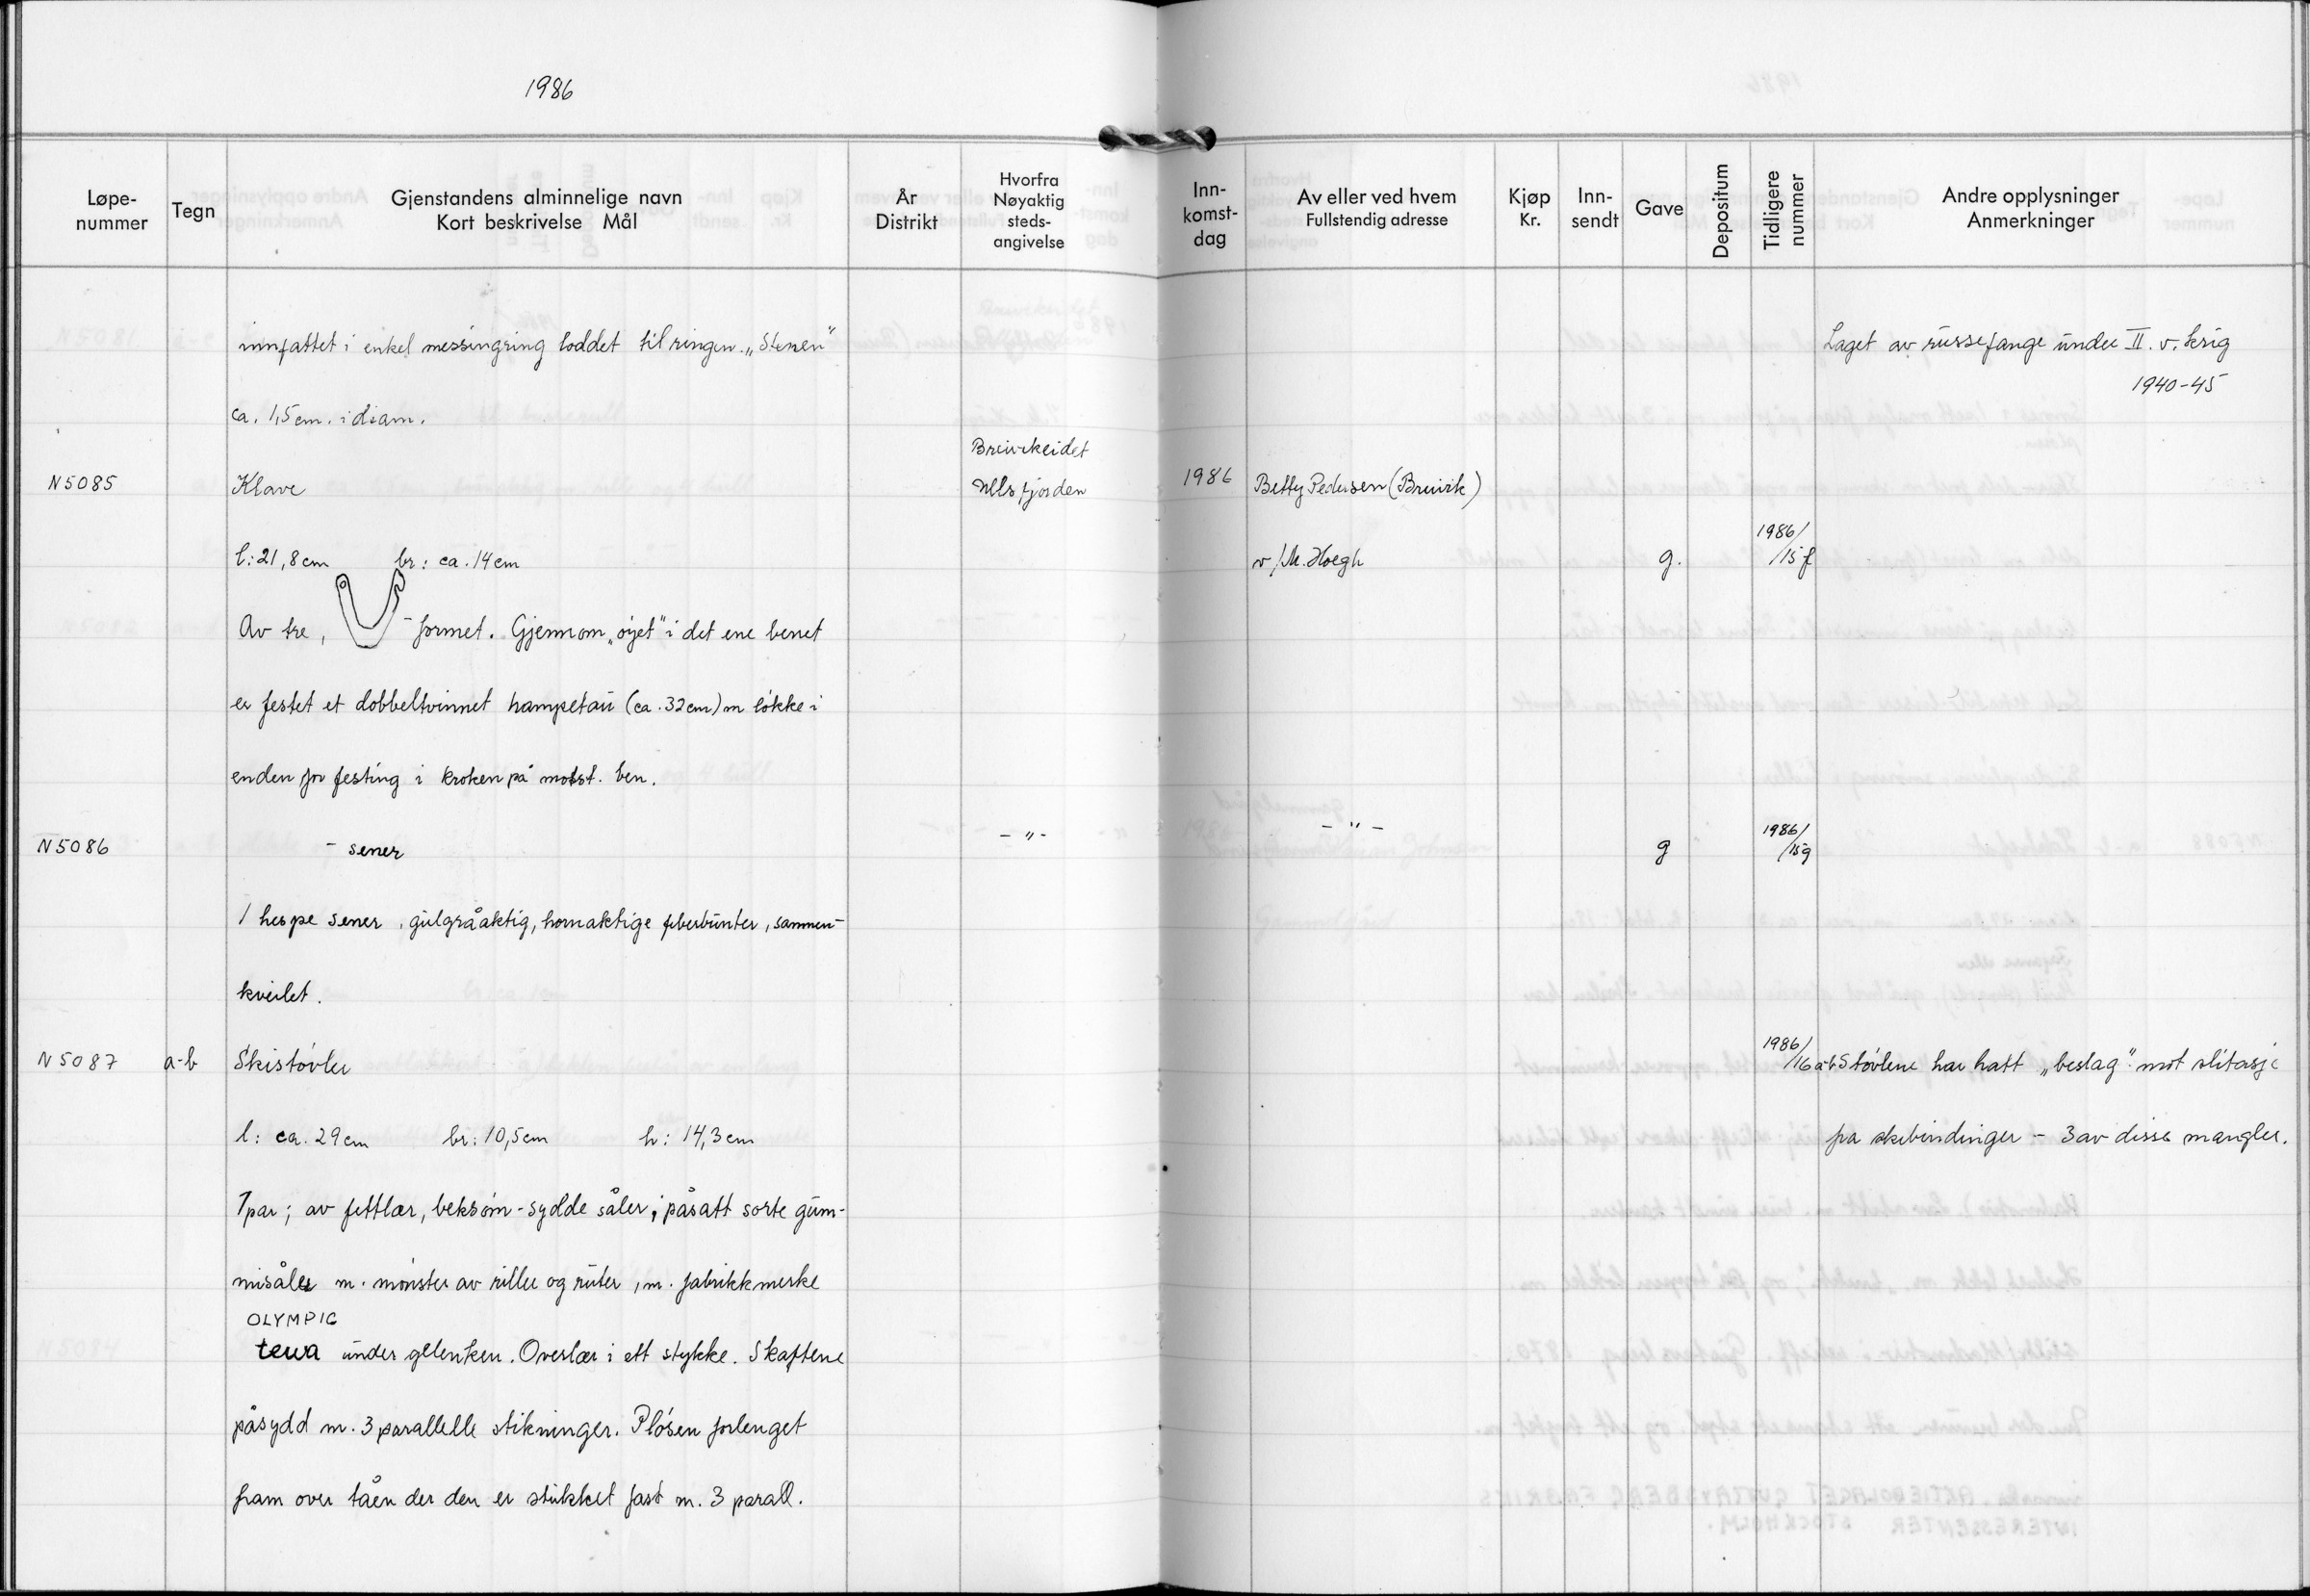 1986
Løpe-nummer Tegn Gjenstandens alminnelige navn Kort beskrivelse Mål År Distrikt Hvorfra Nøyaktig steds-angivelse Inn-komst-dag Av eller ved hvem Fullstendig adresse Kjøp Kr. Inn-sendt Gave Depositum Tidligere nummer Andre opplysninger Anmerkninger
innfattet i enkel messingring loddet til ringen. „Stenen" Laget av russefange under II. v. krig
1940-45
ca. 1,5 cm. i diam.
Breivikeidet
N5085 Klave Ullsfjorden 1986 Betty Pedersen (Breivik)
l: 21,8 cm br: ca. 14 cm v/M. Hoegh g. 1986/15f
Av tre, -formet. Gjennom „øyet" i det ene benet
er festet et dobbeltvinnet hampetau (ca. 32 cm) m løkke i
enden for festing i kroken på motst. ben.
N5086 - sener - " - - " - g 1986/15g
1 hespe sener, gulgråaktig, hornaktige fiberbunter, sammen-
kveilet.
N5087 a-b Skistøvler 1986/16a-b Støvlene har hatt „beslag" mot slitasje
l: ca. 29 cm br: 10,5 cm h: 14,3 cm fra skibindinger - 3 av disse mangler.
1 par; av fettlær, beksøm-sydde såler, påsatt sorte gum-
misåler m. mønster av riller og ruter, m. fabrikkmerke
OLYMPIC
tewa under gelenken. Overlær i ett stykke. Skaftene
påsydd m. 3 parallelle stikninger. Pløsen forlenget
fram over tåen der den er stukket fast m. 3 parall.